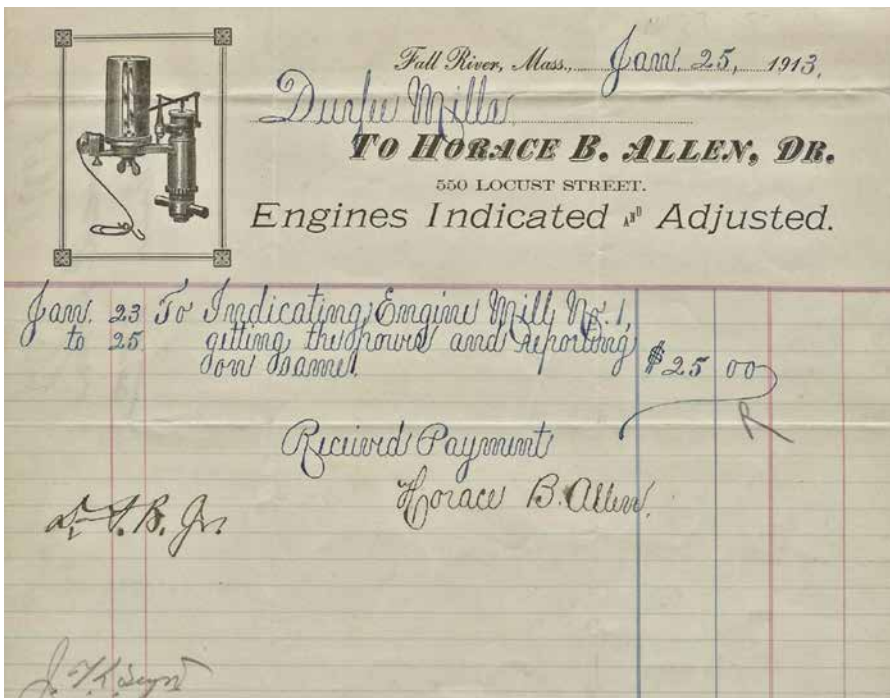 Fall River, Mass., Jan. 25, 1913,
Durfee Mills
TO HORACE B. ALLEN, DR.
550 LOCUST STREET.
Engines Indicated AND Adjusted.
Jan. 23 To Indicating Engine Mill No. 1,
to 25 getting the power and reporting
on same. $25 00
R
Received Payment
Horace B. Allen.
B. Jr.
J.